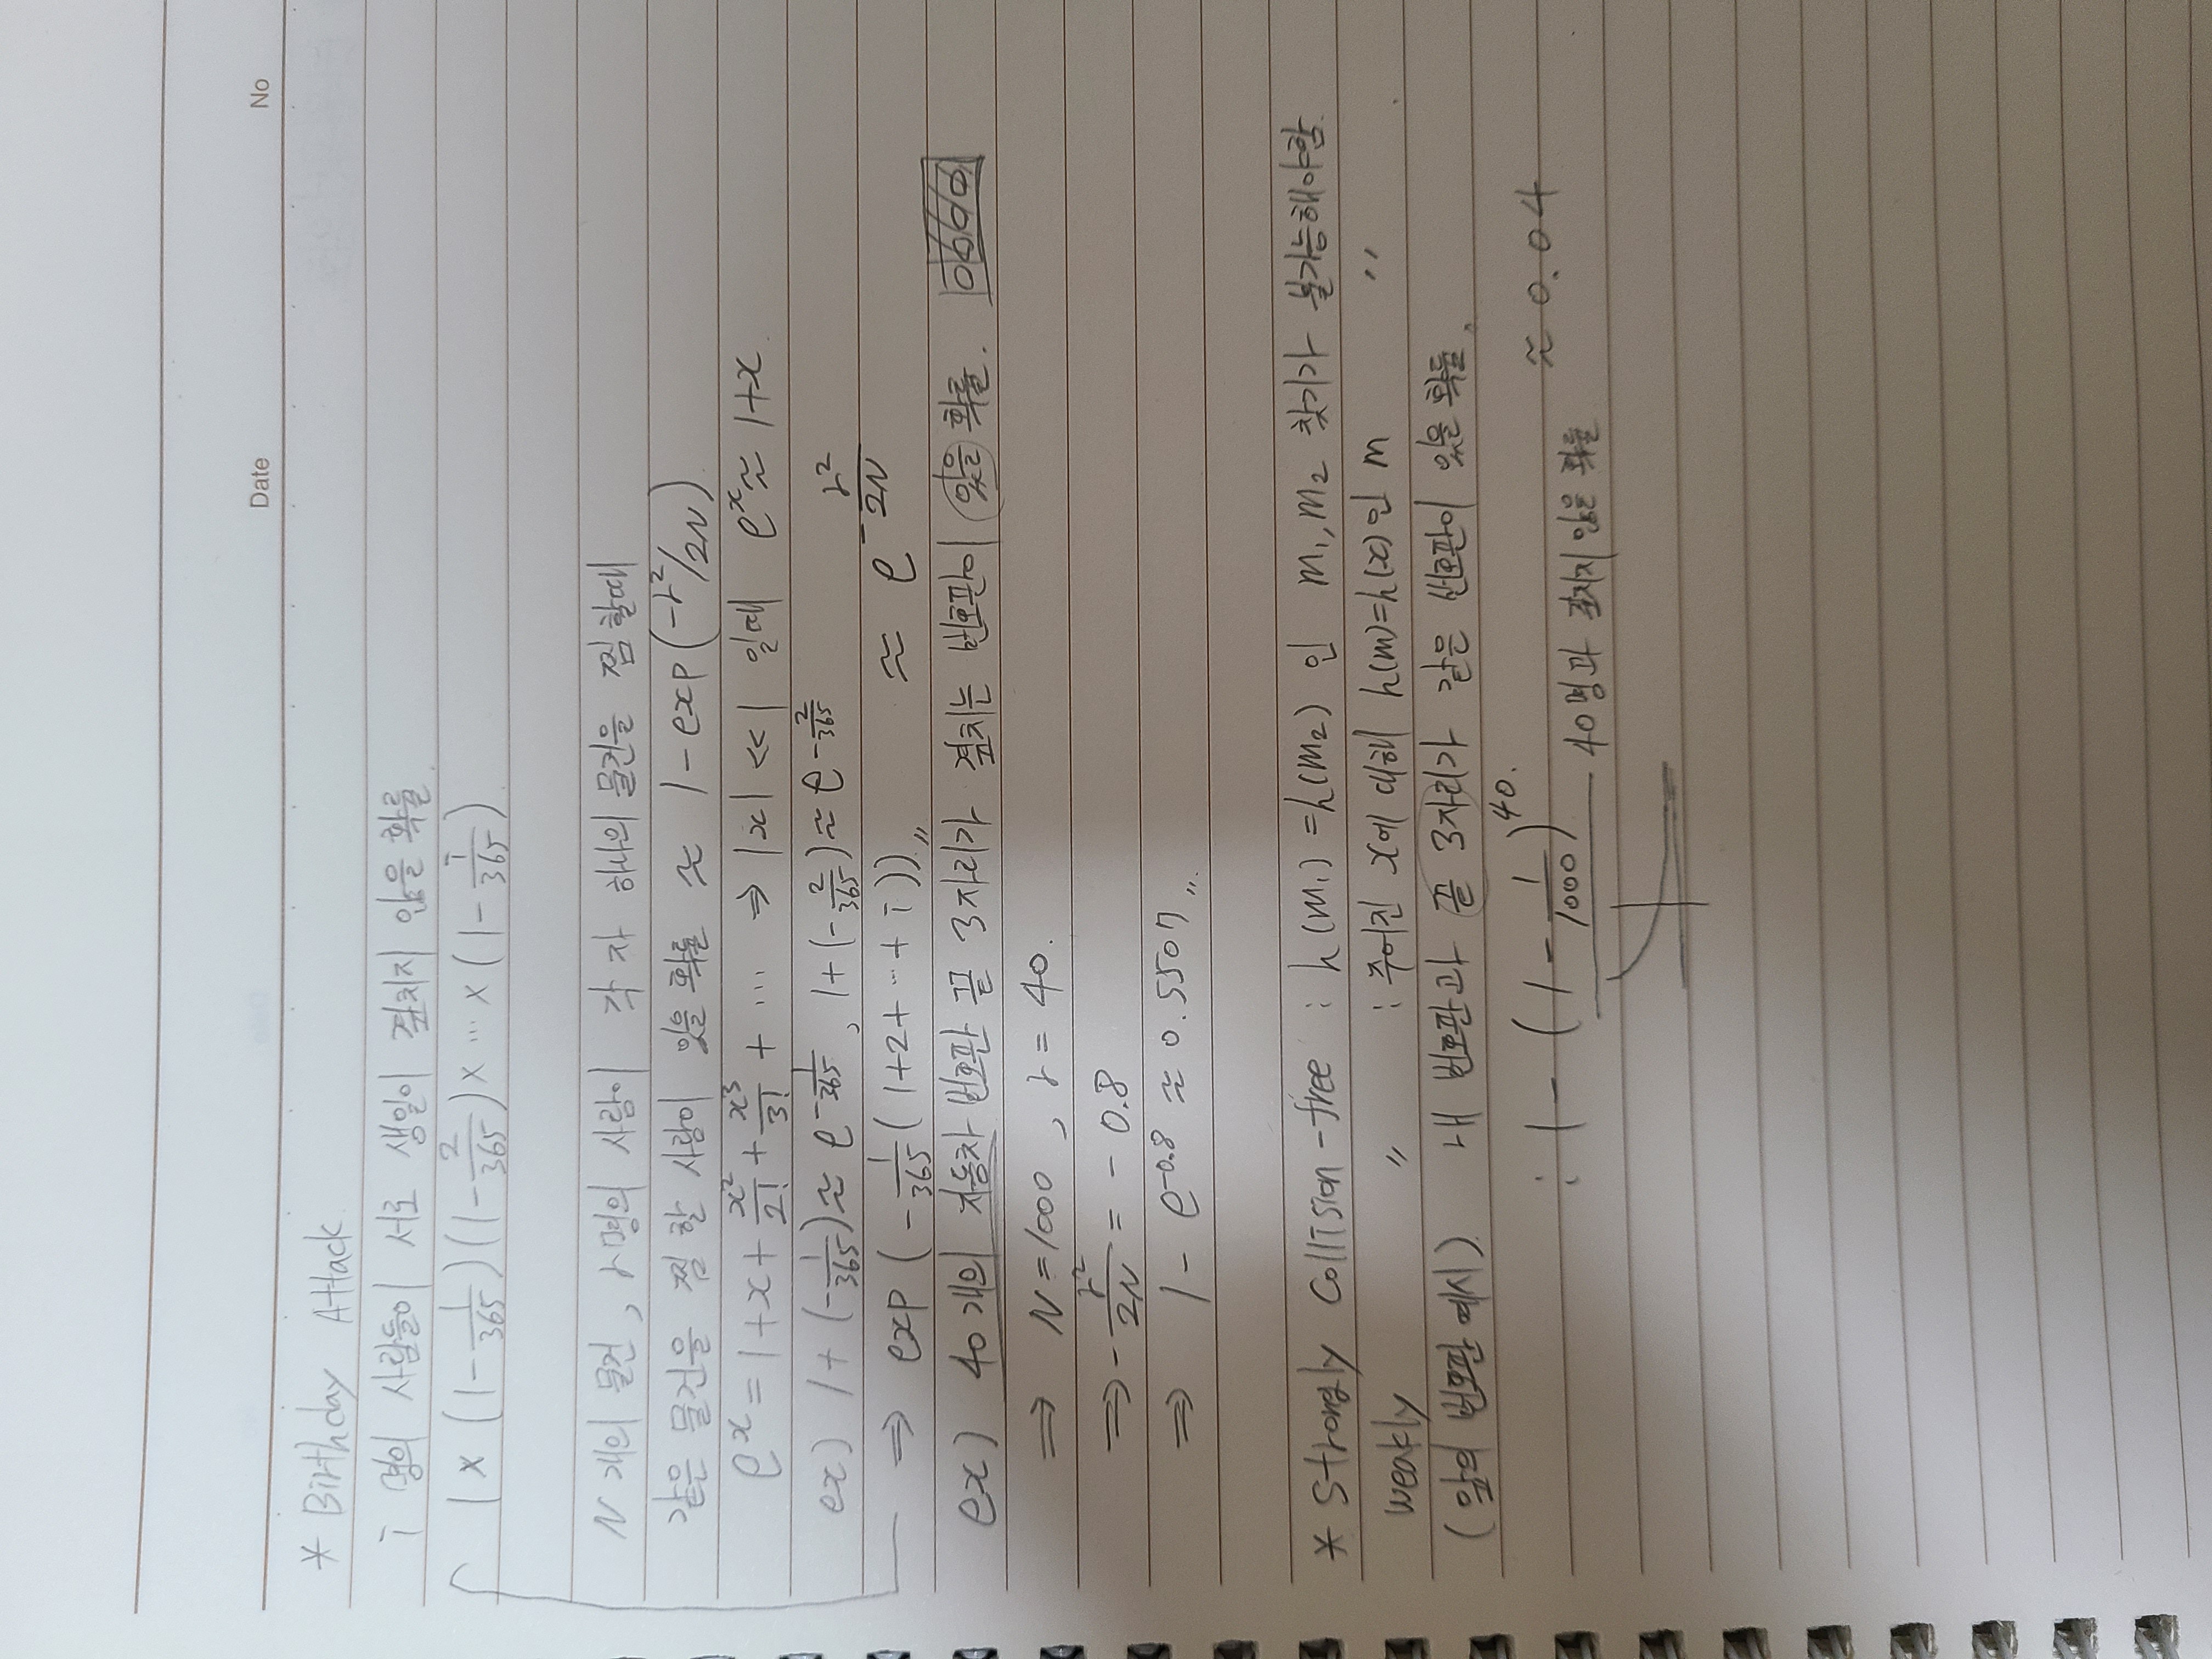 Date No
* Birthday Attack
i 명의 사람들이 서로 생일이 겹치지 않을 확률
1 × (1 - 1/365)(1 - 2/365) × ... × (1 - i/365).
N 개의 물건, r명의 사람이 각자 하나의 물건을 찜할때
같은 물건을 찜 할 사람이 있을 확률 ≈ 1 - exp(-r²/2N)
e^x = 1 + x + x²/2! + x³/3! + ... ⇒ |x| << 1 일때 e^x ≈ 1+x.
ex) 1 + (-1/365) ≈ e^(-1/365), 1 + (-2/365) ≈ e^(-2/365)
⇒ exp(-1/365 (1+2+ ... + i)),, ≈ e^(-r²/2N)
ex) 40개의 자동차 번호판 끝 3자리가 겹치는 번호판이 있을 확률.
⇒ N = 1000, r = 40.
⇒ - r²/2N = - 0.8
⇒ 1 - e^-0.8 ≈ 0.5507,,
* Strongly Collision-free : h(m₁) = h(m₂) 인 m₁, m₂ 찾기가 불가능해야함.
Weakly 〃 : 주어진 x에 대해 h(m)=h(x)인 m 〃 .
(앞의 번호판 예시) 내 번호판과 끝 3자리가 같은 번호판이 있을 확률.
: 1 - (1 - 1/1000)^40. ≈ 0.04
40명과 겹치지 않을 확률